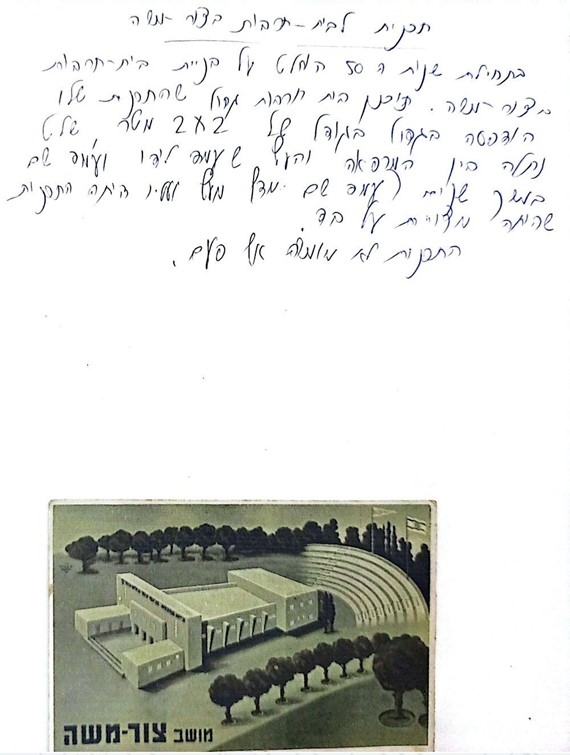 תכנית לבית-תרבות בצור-משה
בתחילת שנות ה 50 הוחלט על בניית בית-תרבות
בצור-משה. תוכנן בית תרבות גדול שהתכנית שלו
הודפסה בגדול בגודל של 2X2 מטר שלט
נתלה בין המרפאה והעץ שעמד לידו ועמד שם
במשך שנים עמד שם מעץ ועליו היתה התכנית
שהיתה מצויירת על בד.
התכנית לא מומשה אף פעם.
מושב צור-משה